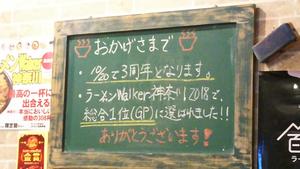 おかげさまで
・10/20で3周年となります。
・ラーメンWalker神奈川2018で、
総合1位(GP)に選ばれました!!
ありがとうございます!
ラーメンWalker
神奈川
最高の一杯に
出会える!